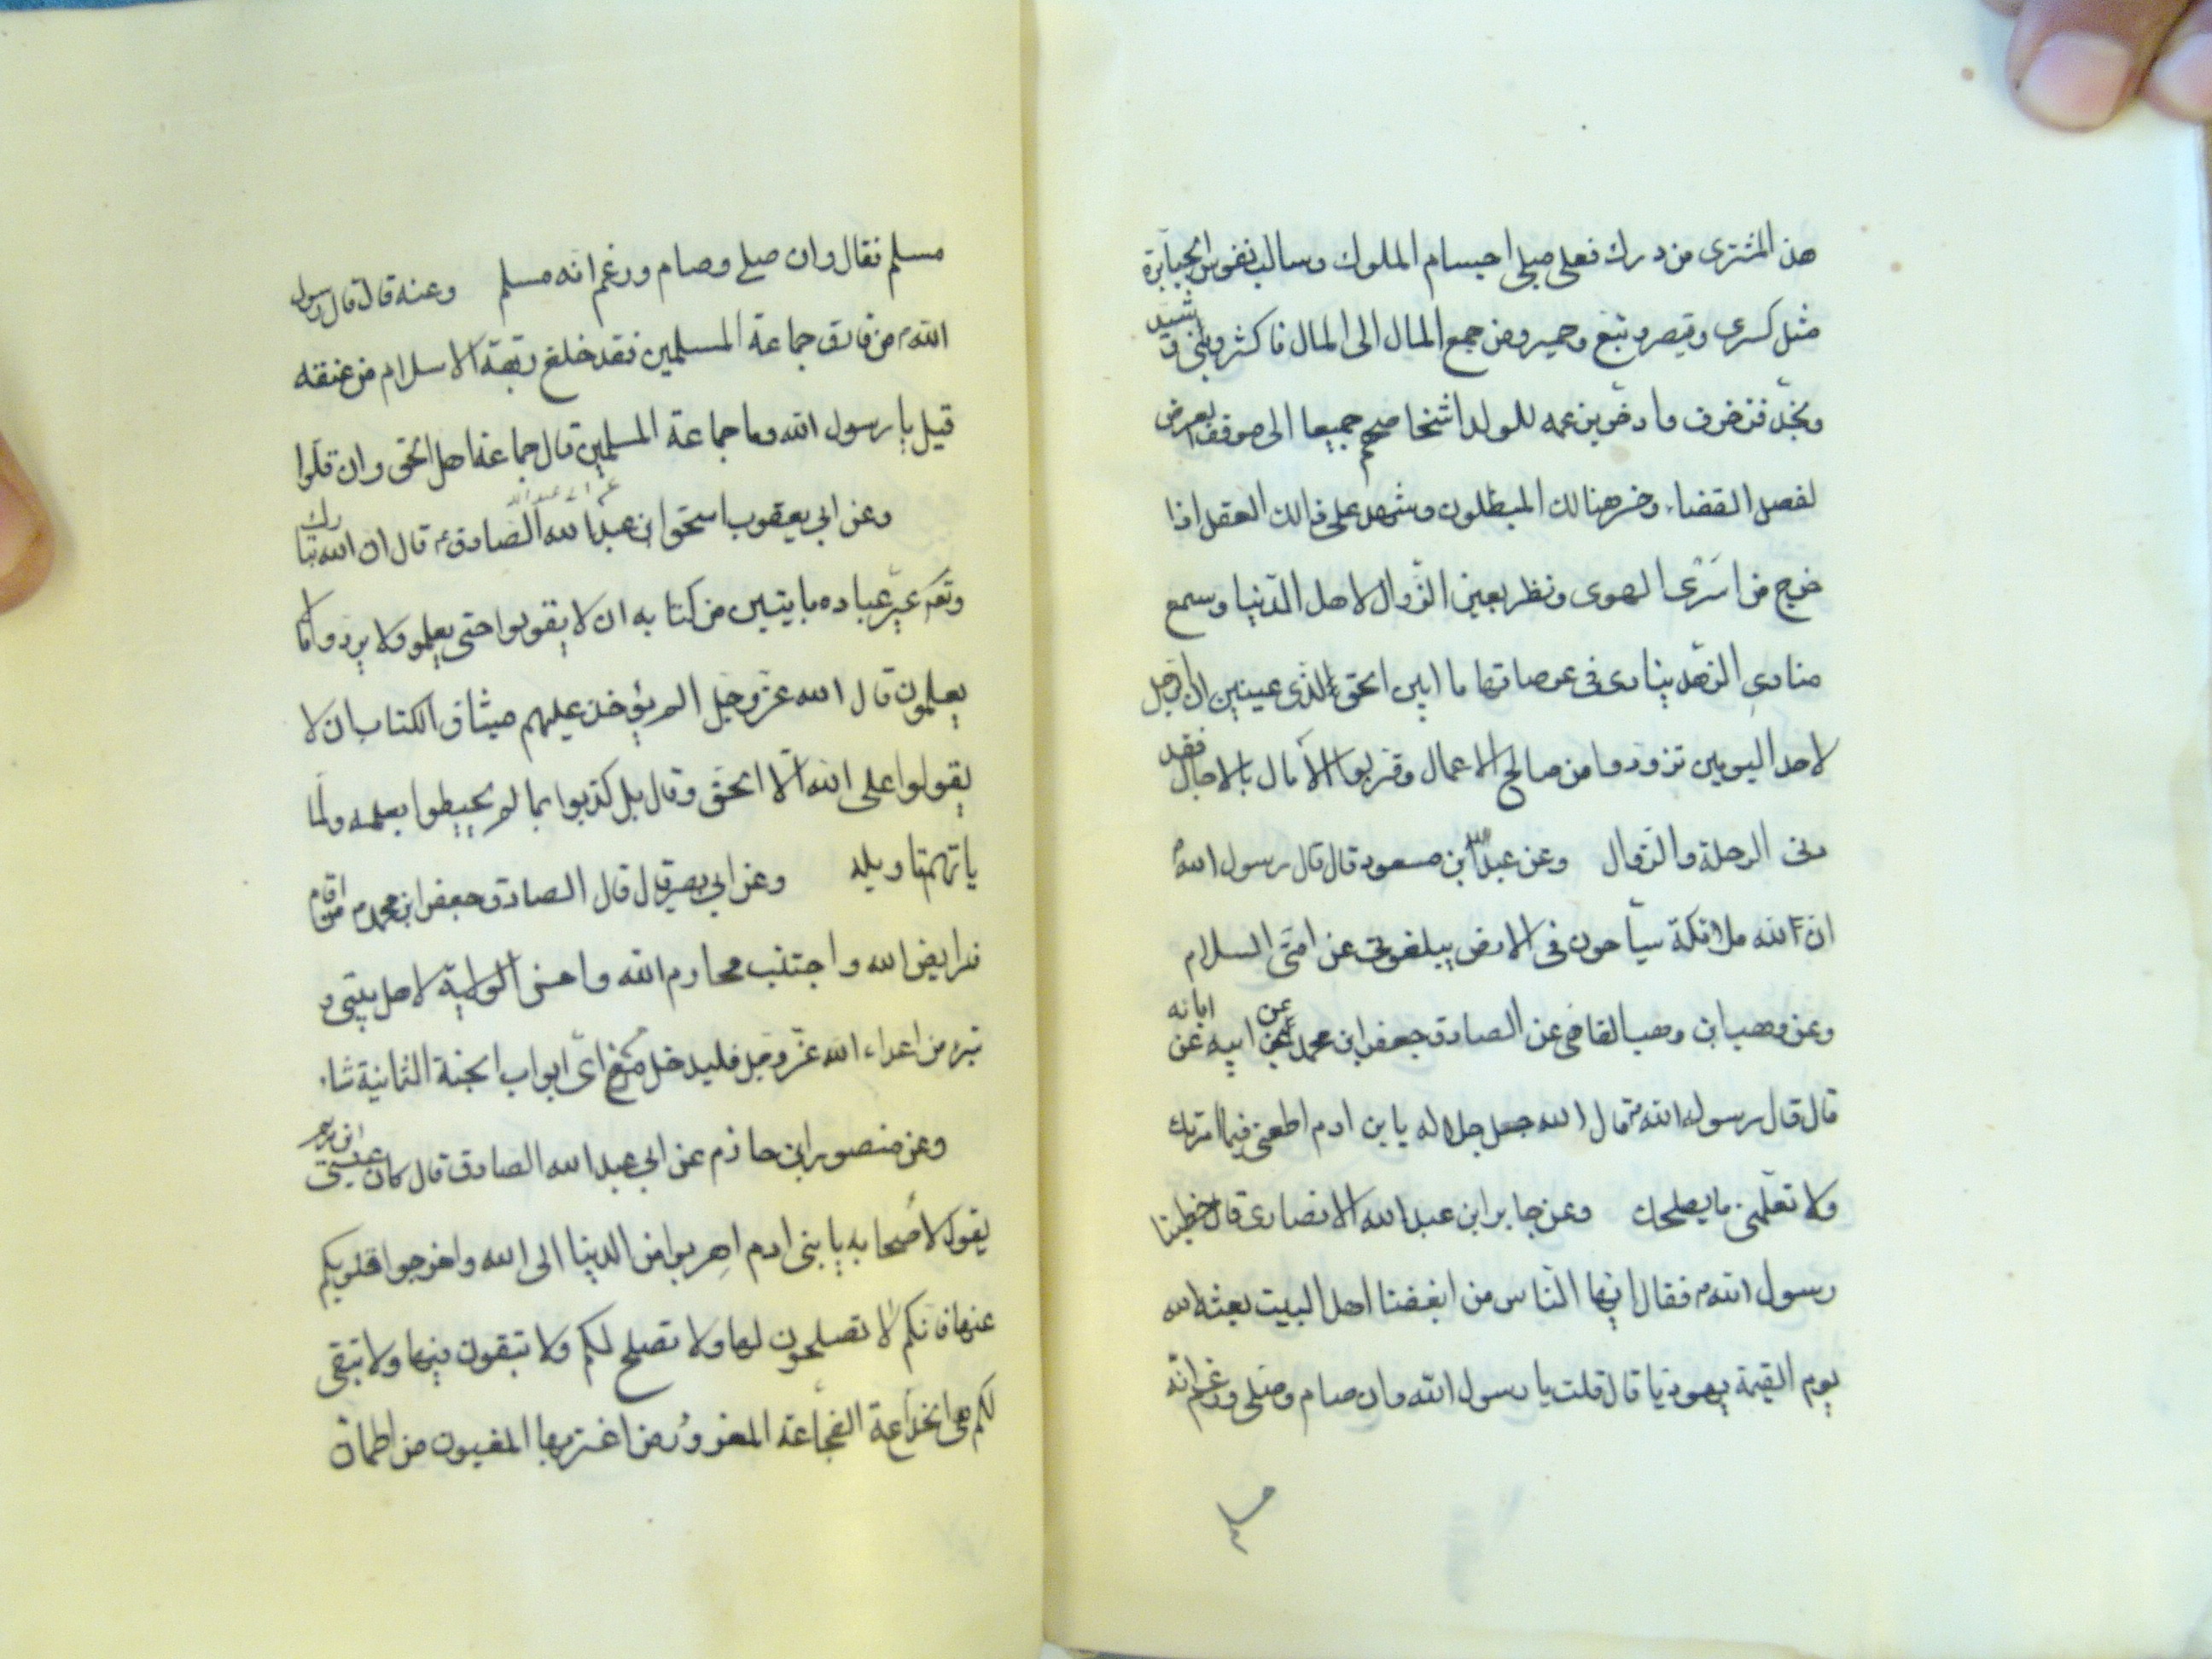 هذا المشترى من درك فعلى مبلى اجسام الملوك وسالب نفوس الجبابرة
مثل كسرى وقيصر وتبع وحمير ومن جمع المال الى المال فاكثر وبنى فشيد
ونجد فزخرف وادخر بزعمه للولد اشخاصهم جميعا الى موقف العرض
لفصل القضاء وخسر هنالك المبطلون وشهد على ذالك العقل اذا
خرج من اسر الهوى ونظر بعين الزوال لاهل الدنيا وسمع
منادى الزهد ينادى فى عرصاتها ما ابين الحق لذى عينين ان الرحيل
لاحد اليومين تزودوا من صالح الاعمال وقربوا الآمال بالاجال فقد
دنى الرحلة والزوال وعن عبد الله ابن مسعود قال قال رسول الله
ان لله ملائكة سياحون فى الارض يبلغونى عن امتى السلام
وعن وهب ابن وهب القاضى عن الصادق جعفر ابن محمد عن ابيه عن ابائه
قال قال رسول الله قال الله جل جلاله يابن ادم اطعنى فيما امرتك
ولا تعلمنى ما يصلحك وعن جابر ابن عبد الله الانصارى قال خطبنا
رسول الله فقال ايها الناس من ابغضنا اهل البيت بعثه الله
يوم القيمة يهوديا قال قلت يا رسول الله وان صام وصلى وزعم انه
مسلم فقال وان صلى وصام وزعم انه مسلم وعنه قال قال رسول
الله من فارق جماعة المسلمين فقد خلع ربقة الاسلام من عنقه
قيل يا رسول الله وما جماعة المسلمين قال جماعة اهل الحق وان قلوا
وعن ابي يعقوب اسحق ابن عبد الله عن ابى عبد الله الصادق قال ان الله تبارك
وتعالى عير عباده بايتين من كتابه ان لا يقولوا حتى يعلمو ولا يردوا ما لا
يعلمون قال الله عز وجل الم يؤخذ عليهم ميثاق الكتاب ان لا
يقولوا على الله الا الحق وقال بل كذبوا بما لم يحيطوا بعلمه ولما
ياتهم تاويله وعن ابي بصير قال قال الصادق جعفر ابن محمد من اقام
فرايض الله واجتنب محارم الله واحسن الولاية لاهل بيتى و
تبرء من اعداء الله عز وجل فليدخل من اى ابواب الجنة الثمانية شاء
وعن منصور ابن حازم عن ابي عبد الله الصادق قال كان عيسى ابن مريم
يقول لاصحابه يا بنى ادم اهربوا من الدنيا الى الله واخرجوا قلوبكم
عنها فانكم لا تصلحون لها ولا تصلح لكم ولا تبقون فيها ولا تبقى
لكم هى الخداعة الفجاعة المغرور من اغتر بها المغبون من اطمان